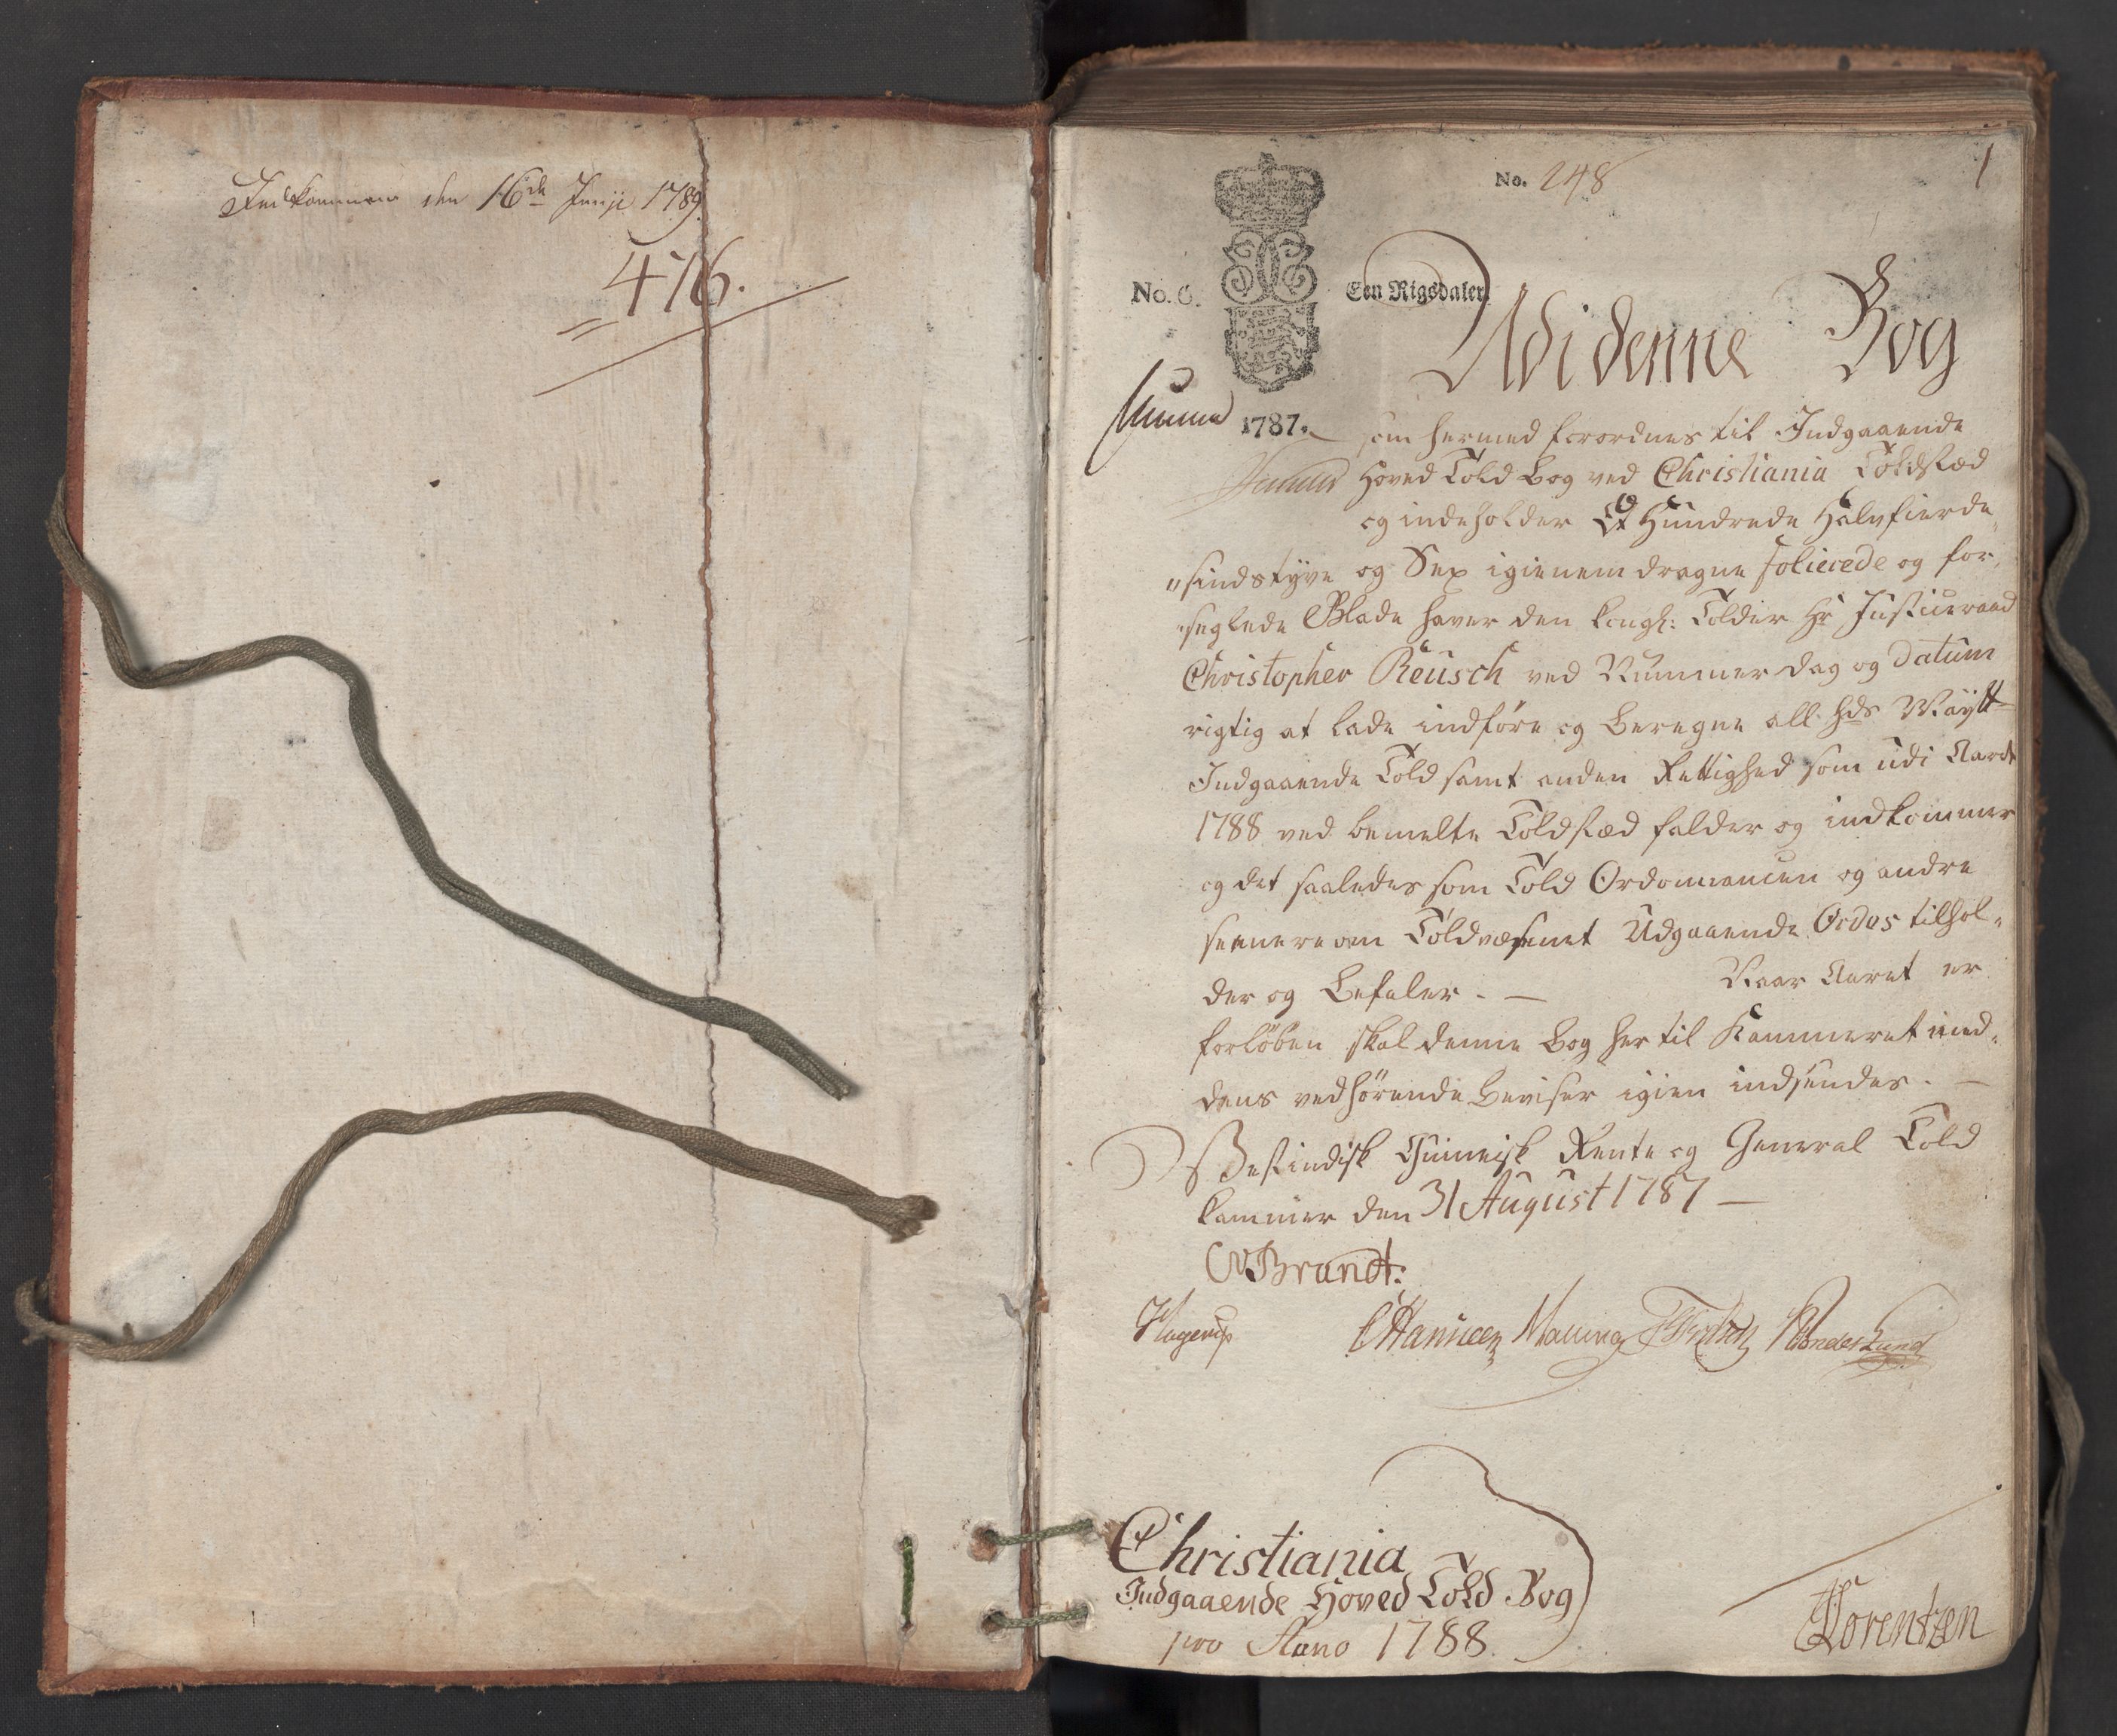 Indkommen den 16de Junji 1789.
476.
No. 248
1
No. 6.
Een Rigsdaler.
1787.
Udi denne Bog
som hermed forordnes til Indgaaende
Hoved Told Bog ved Christiania Toldstæd
og indeholder Et Hundrede Halvfierde
"sindstÿve og Sex igienemdragne foliered​e og for,
seglede Blade haver den Kongl: Tolder Hr Justiceraad
Christopher Reusch ved Nummer Dag og Datum
rigtig at lade indføre og beregne all Hds Maÿtt
Indgaaende Told samt anden Rettighed som udi Aaret
1788 ved bemelte Toldstæd falder og indkommer
og det saaledes som Told Ordonnancen og andre
seenere om Toldvæsenet Udgaaende Ordres tilhol,
der og befaler. — Naar Aaret er
forløben skal denne Bog her til Kammeret med,
dens vedhørende Beviser igien indsendes. —
Vestindisk Guineisk Rente og General Told
Kammer den 31 August 1787 —
Brandt:
Hagerup
Malling
Lund
Christiania
Indgaaende Hoved Told Bog
pro Anno 1788.
Lorentzen